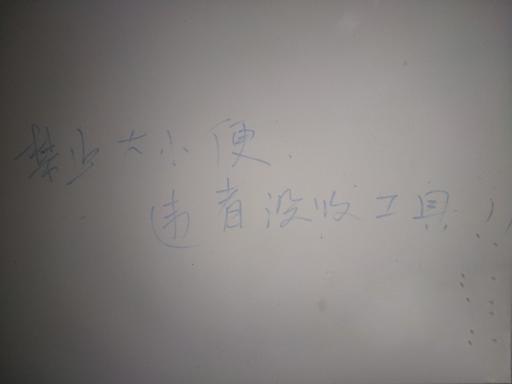 禁止大小便.
违者没收工具!!